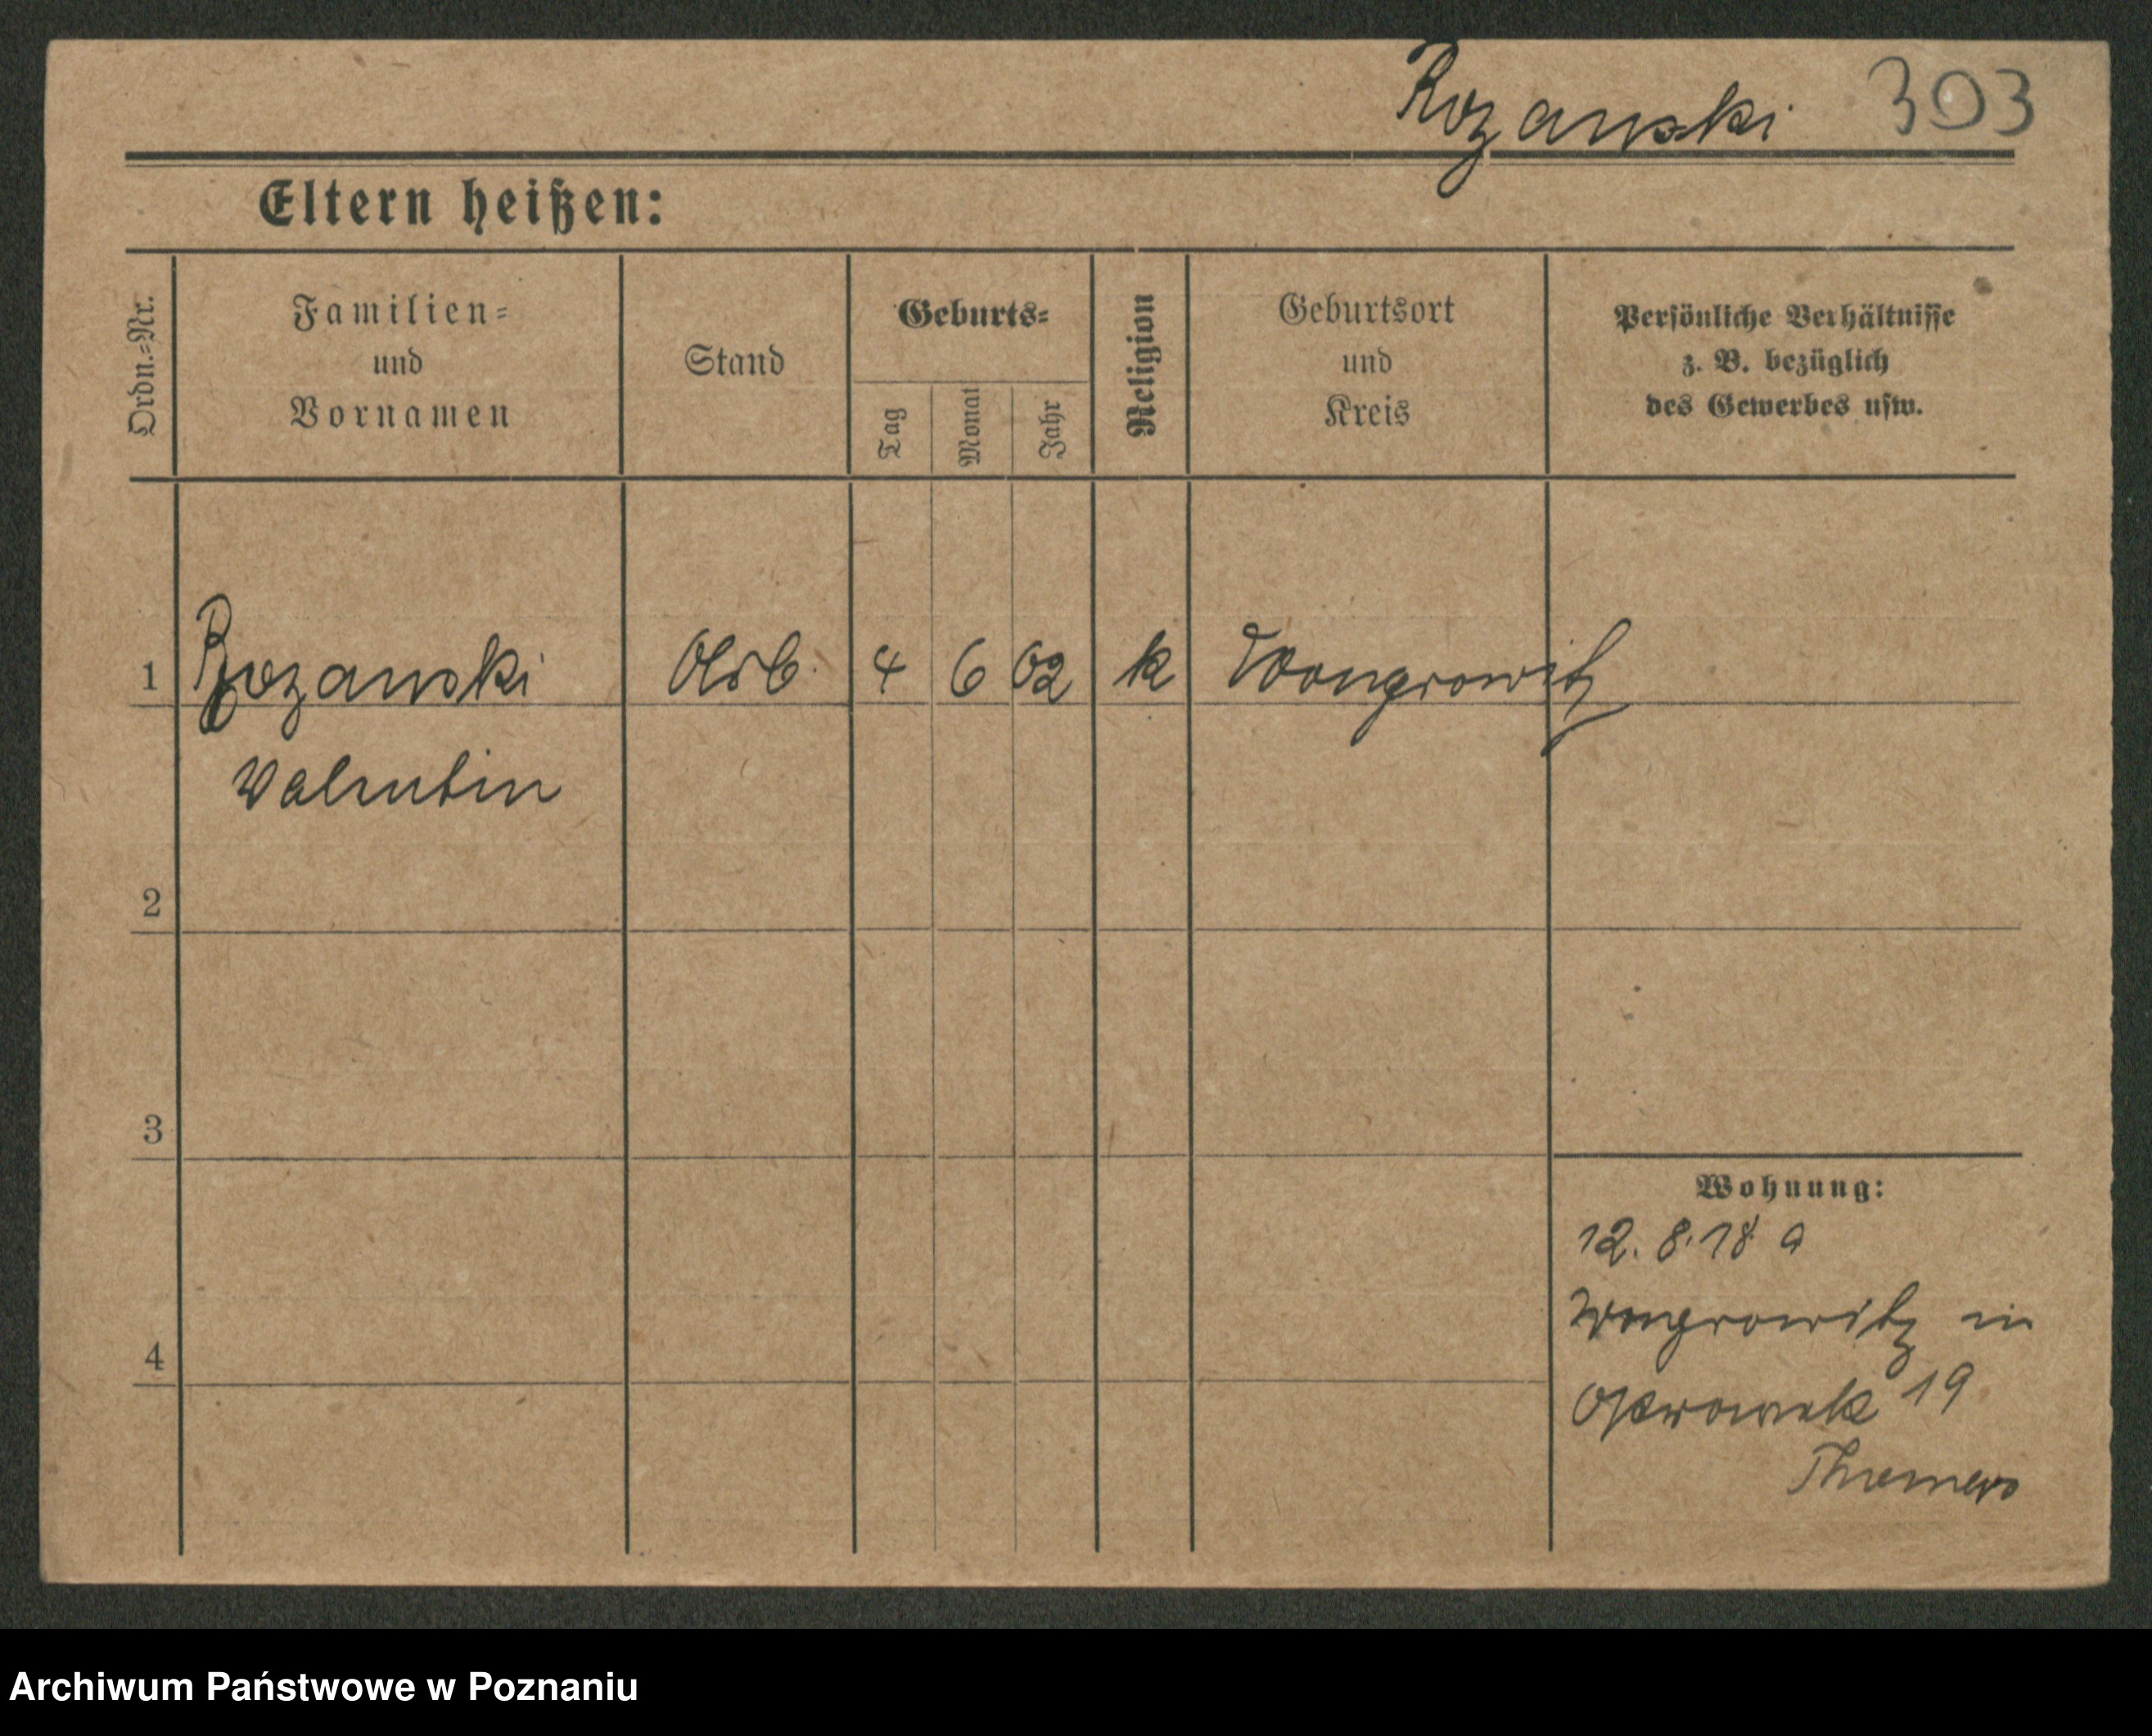 Rozanski 303
Eltern heißen:
Ordn.=Nr.
Familien=
und
Vornamen
Stand
Geburts=
Tag
Monat
Jahr
Religion
Geburtsort
und
Kreis
Persönliche Verhältnisse
z. B. bezüglich
des Gewerbes usw.
1 Rozanski Arb. 4 6 02 k Wongrowitz
Valentin
2
3
4
Wohnung:
12. 8. 18 a
Wongrowitz in
19
Archiwum Państwowe w Poznaniu